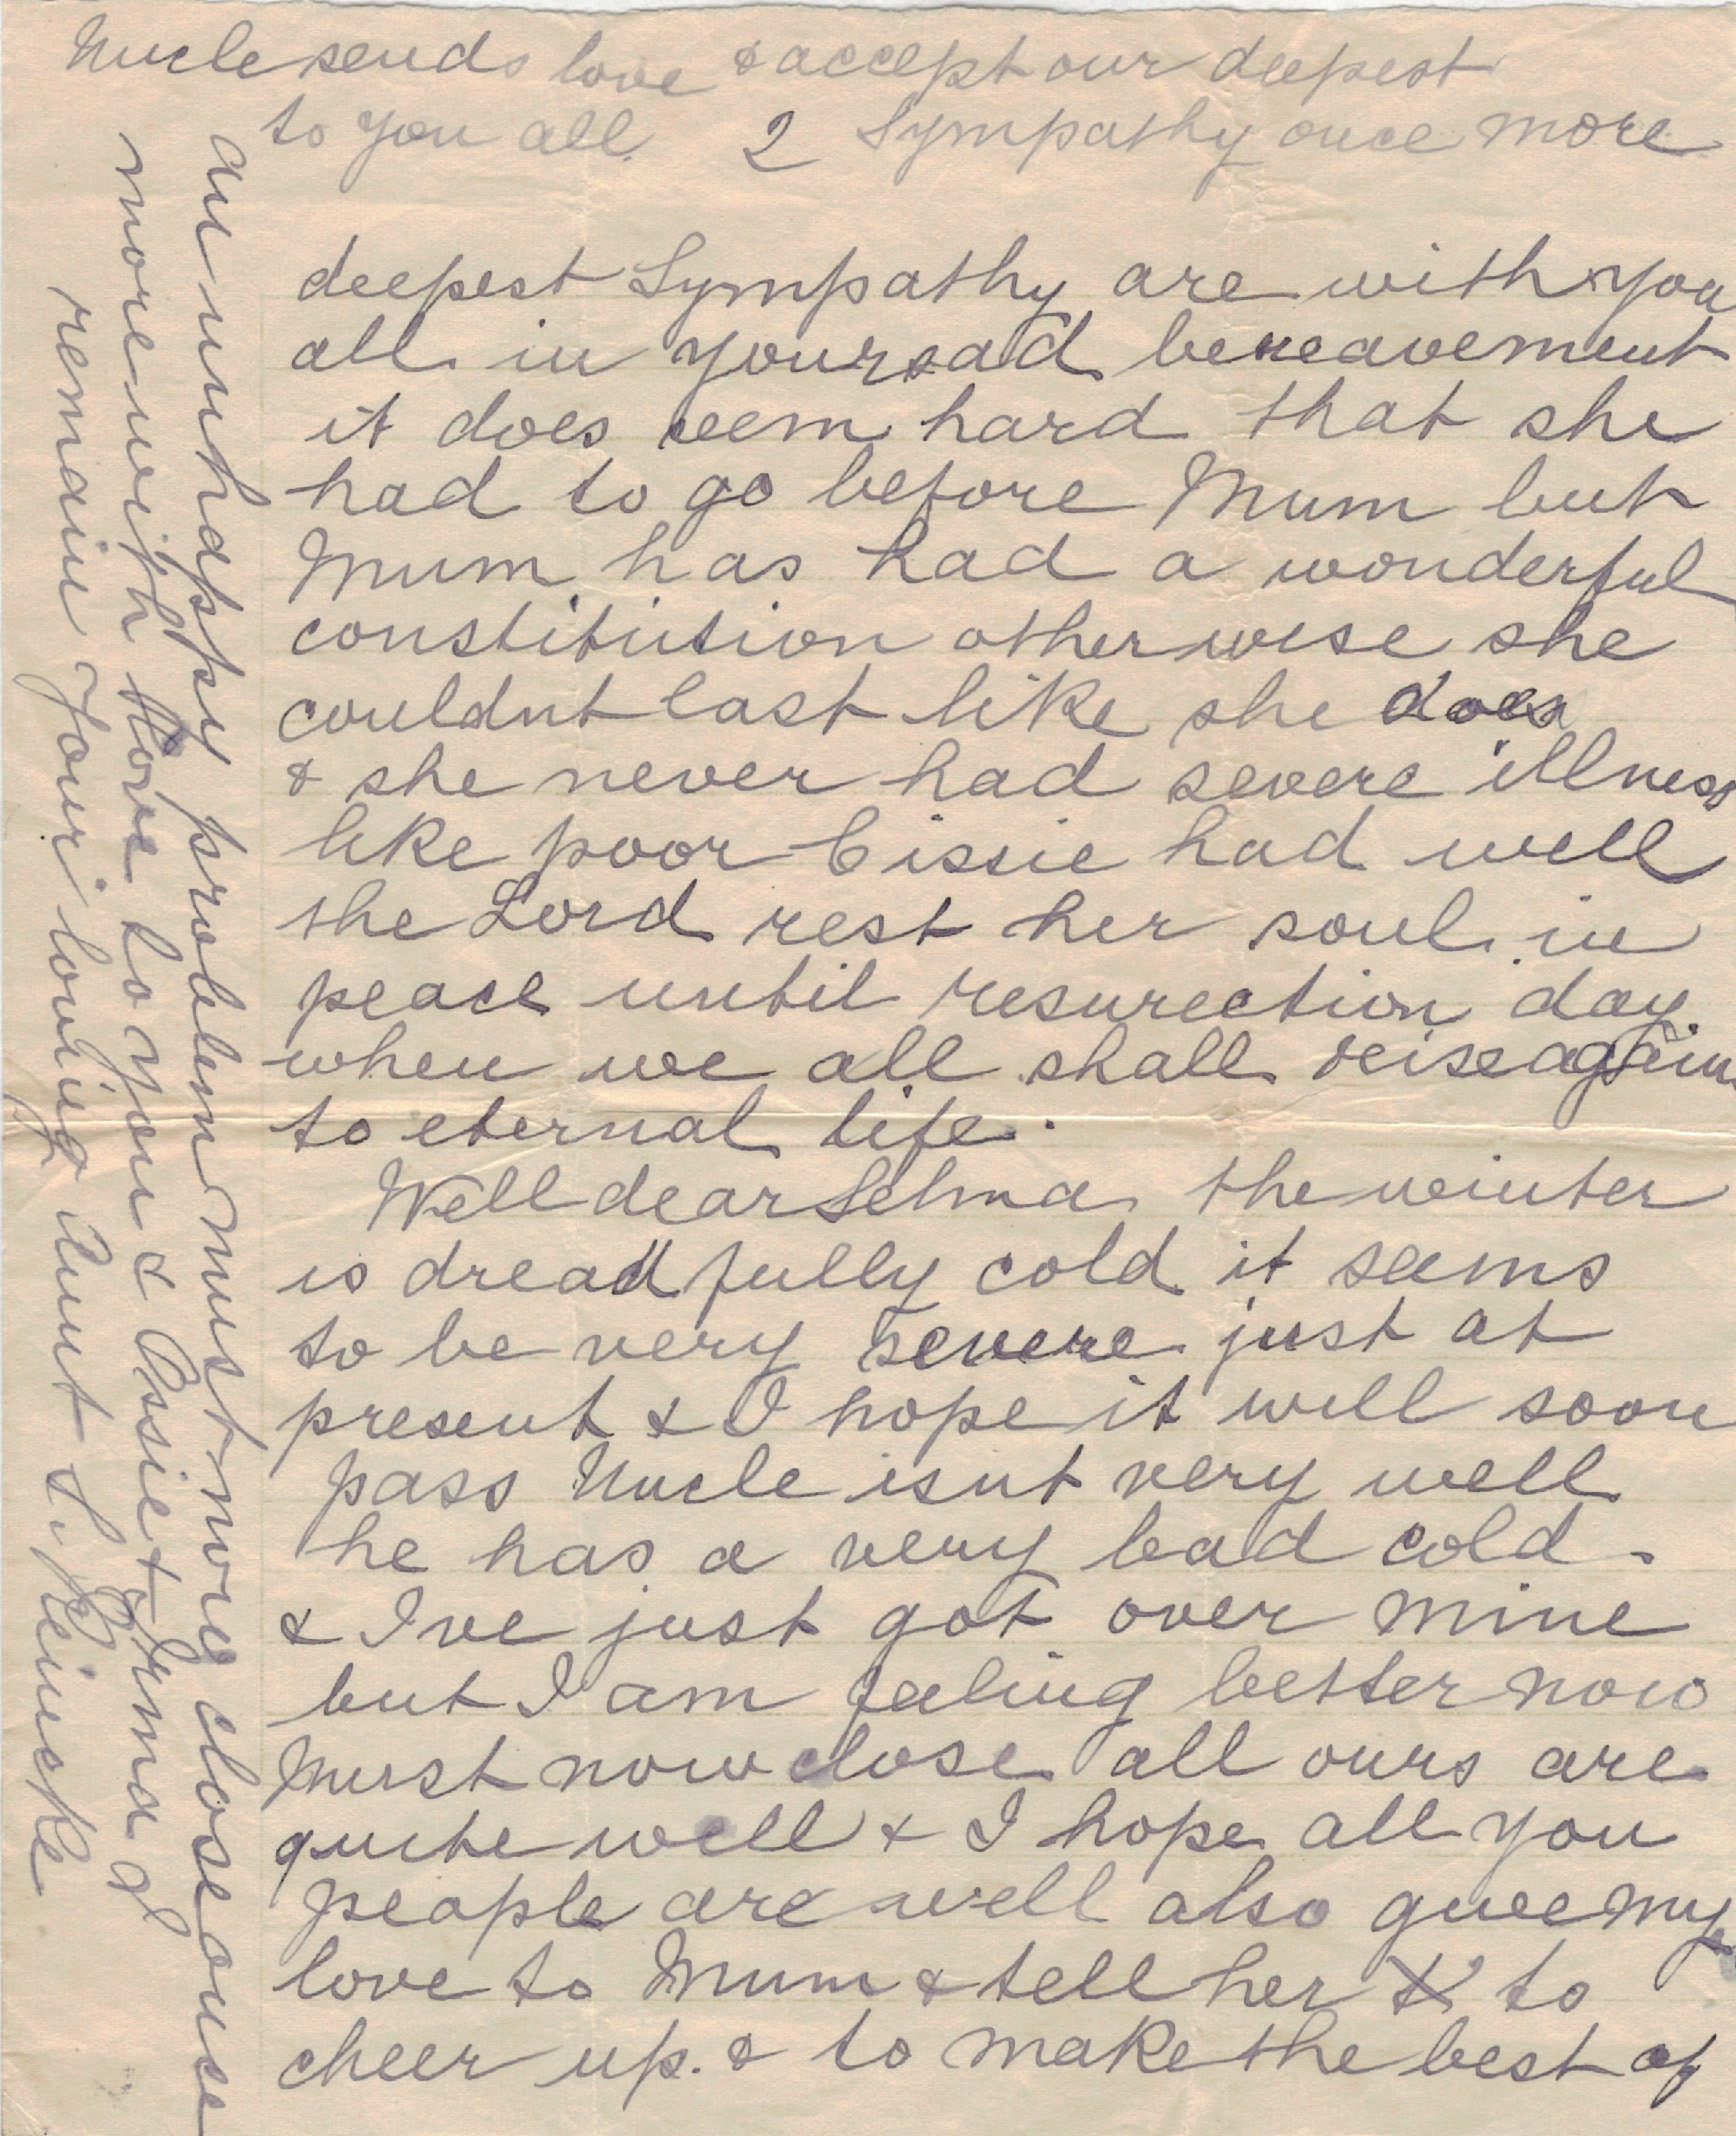 Uncle sends love & accept our deepest
to you all. 2 Sympathy once more
deepest Sympathy are with you
all in your sad bereavement
it does seem hard that she
had to go before Mum but
Mum has had a wonderful
constitution otherwise she
couldnt last like she does
& she never had severe illness
like poor Cissie had well
the Lord rest her soul in
peace until resurection day
when we all shall reise again
to eternal life.
Well dear Selma the winter
is dreadfully cold it seems
to be very severe just at
present & I hope it will soon
pass Uncle isnt very well
he has a very bad cold.
& Ive just got over mine
but I am feeling better now
Must now close all ours are
quite well & I hope all you
people are well also give my
love to Mum & tell her to
cheer up. & to make the best of
an unhappy problem must now close once
more with love to you & Ossie & Irma I
remain Your loving Aunt S. Reincke